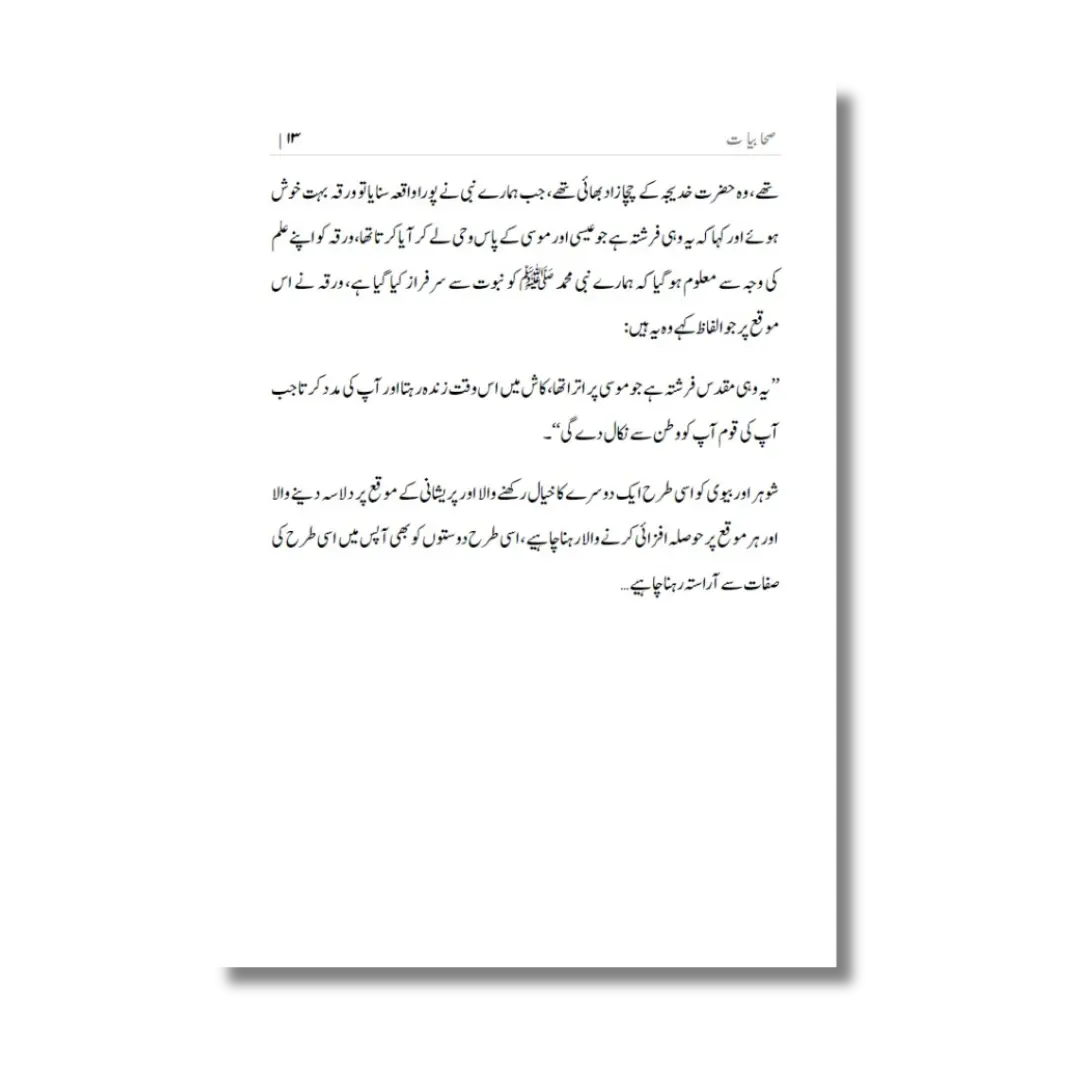 صحابیات ۱۳ |
تھے، وہ حضرت خدیجہ کے چچازاد بھائی تھے، جب ہمارے نبی نے پورا واقعہ سنایا تو ورقہ بہت خوش
ہوئے اور کہا کہ یہ وہی فرشتہ ہے جو عیسی اور موسی کے پاس وحی لے کر آیا کرتا تھا، ورقہ کو اپنے علم
کی وجہ سے معلوم ہو گیا کہ ہمارے نبی محمد ﷺ کو نبوت سے سرفراز کیا گیا ہے، ورقہ نے اس
موقع پر جو الفاظ کہے وہ یہ ہیں:
”یہ وہی مقدس فرشتہ ہے جو موسی پر اترا تھا، کاش میں اس وقت زندہ رہتا اور آپ کی مدد کرتا جب
آپ کی قوم آپ کو وطن سے نکال دے گی“۔
شوہر اور بیوی کو اسی طرح ایک دوسرے کا خیال رکھنے والا اور پریشانی کے موقع پر دلاسہ دینے والا
اور ہر موقع پر حوصلہ افزائی کرنے والا رہنا چاہیے، اسی طرح دوستوں کو بھی آپس میں اسی طرح کی
صفات سے آراستہ رہنا چاہیے...